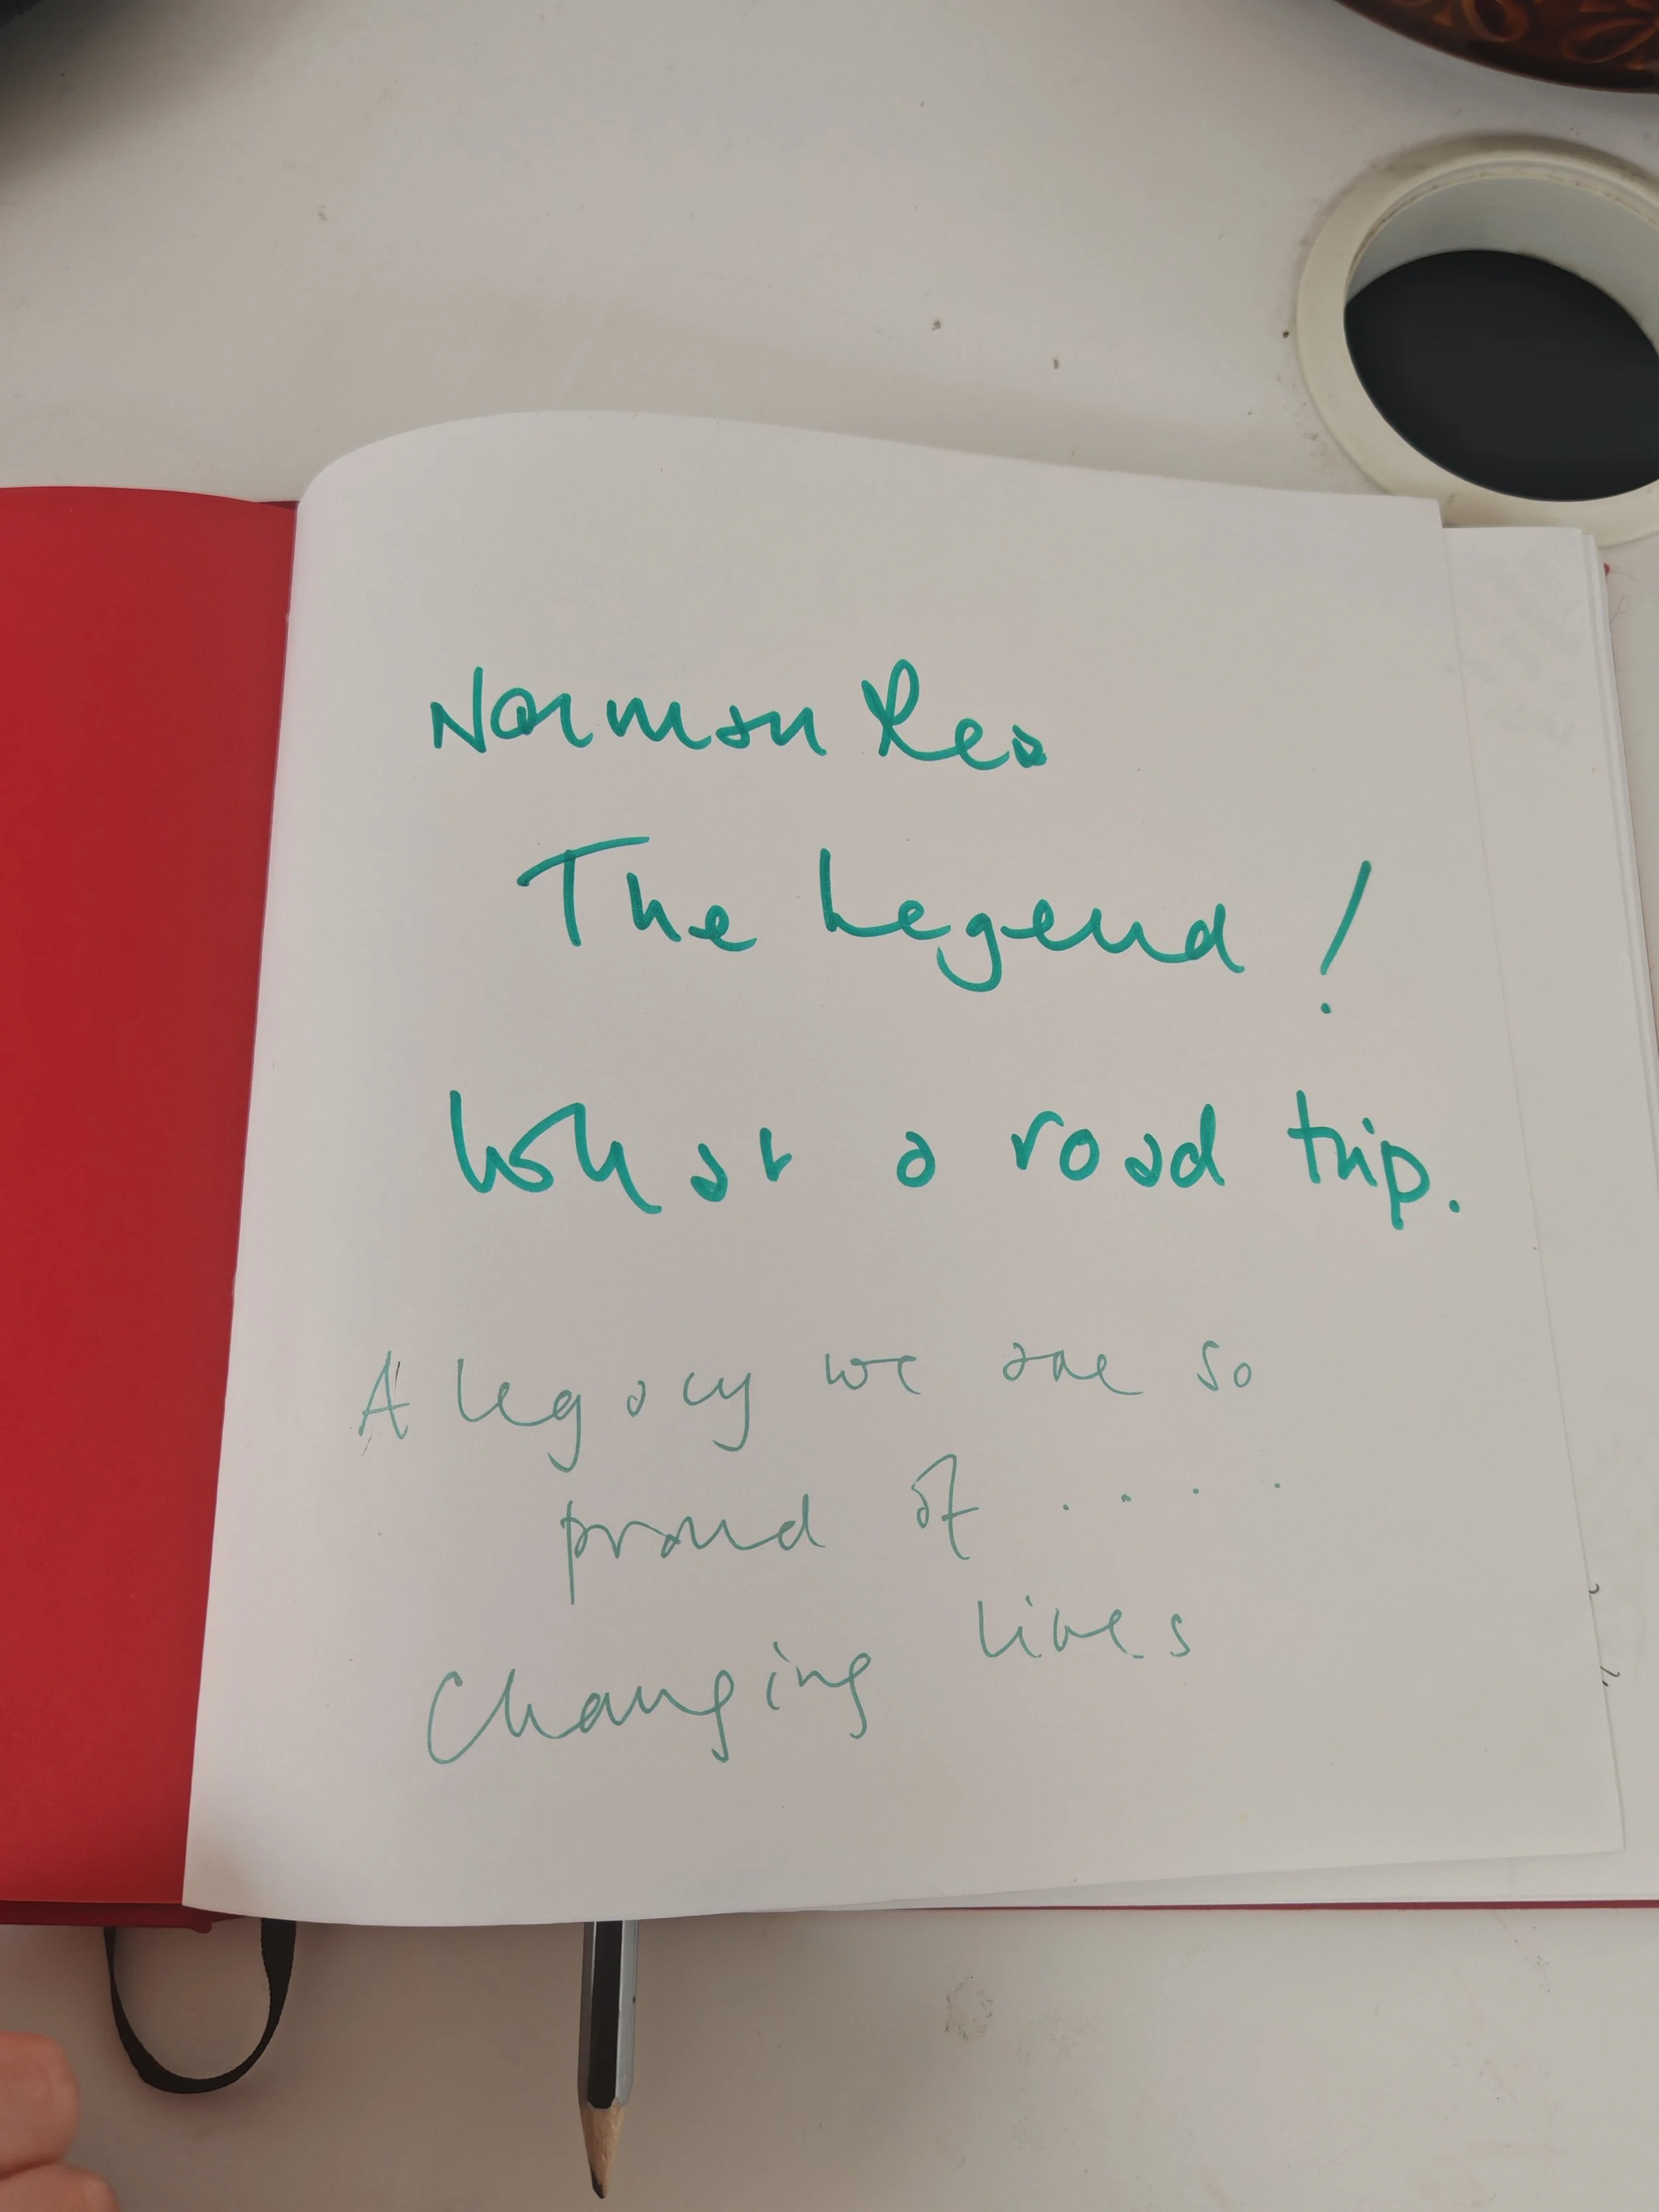 Norman Rea
The Legend!
What a road trip.
A legacy we are so
proud of .....
Changing lives